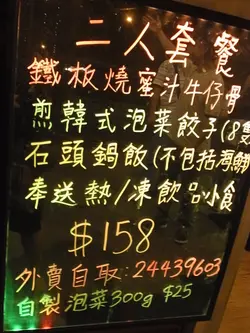 二人套餐
鐵板燒蜜汁牛仔骨
煎韓式泡菜餃子(8隻
石頭鍋飯(不包括海鮮
奉送熱/凍飲品小食
$158
外賣自取:24439603
自製泡菜300g $25